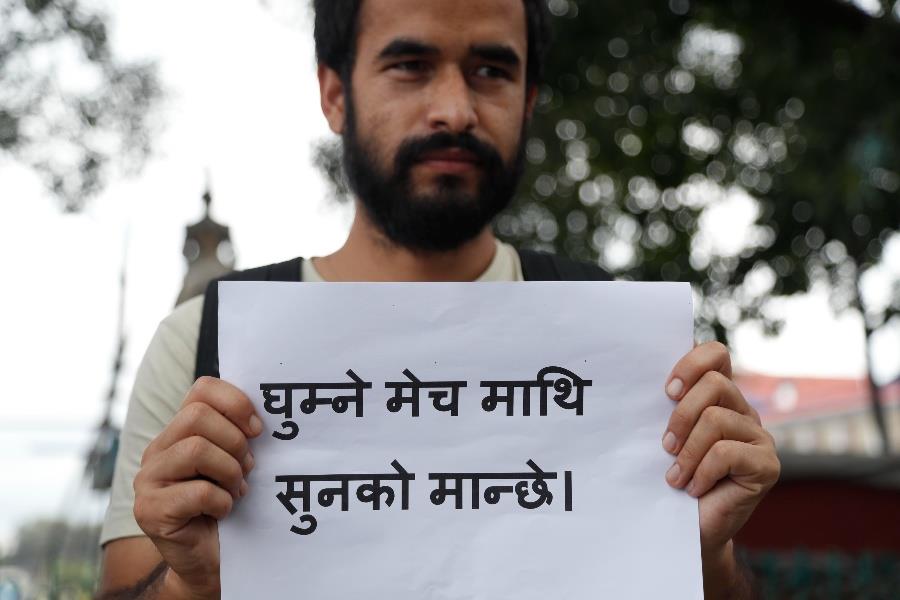 घुम्ने मेच माथि
सुनको मान्छे।